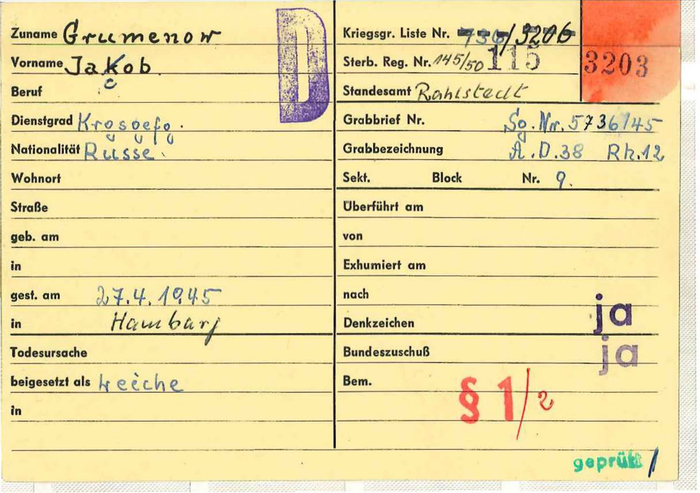 Zuname Grumenow
Vorname Jakob
Beruf
Dienstgrad
Nationalität Russe.
Wohnort
Straße
geb. am
in
gest. am 27.4.1945
in Hamburg
Todesursache
beigesetzt als Leiche
in
D
Kriegsgr. Liste Nr. 736/3206
Sterb. Reg. Nr. 145/50 115
3203
Standesamt Rahlstedt
Grabbrief Nr. Sg. Nr. 5736/45
Grabbezeichnung A.D.38 Rh.12
Sekt. Block Nr. 9.
Überführt am
von
Exhumiert am
nach
Denkzeichen ja
Bundeszuschuß ja
Bem. § 1/2
geprüft